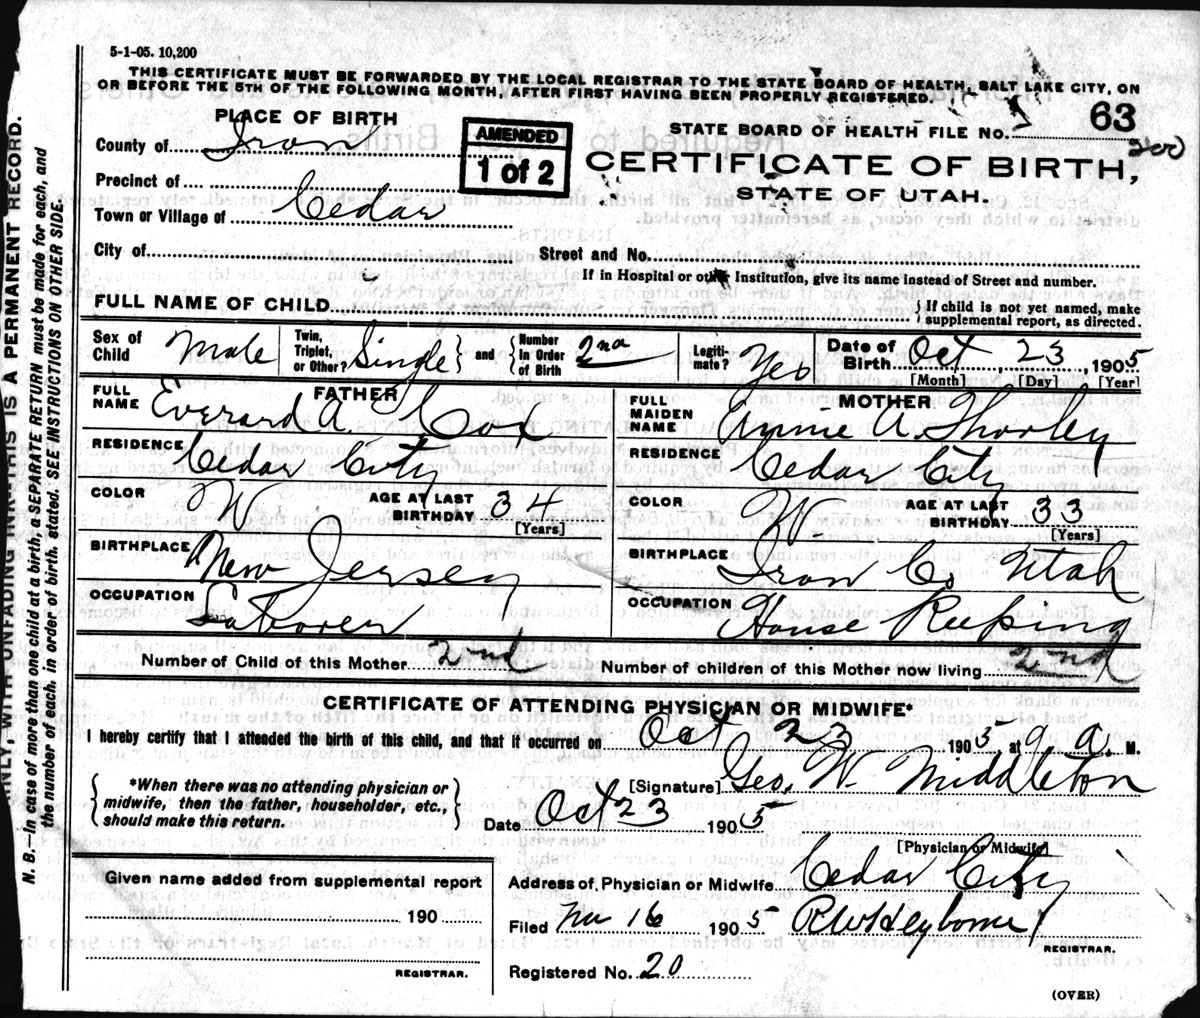 5-1-05. 10,200
THIS CERTIFICATE MUST BE FORWARDED BY THE LOCAL REGISTRAR TO THE STATE BOARD OF HEALTH, SALT LAKE CITY, ON
OR BEFORE THE 5TH OF THE FOLLOWING MONTH, AFTER FIRST HAVING BEEN PROPERLY REGISTERED.
PLACE OF BIRTH
County of Iron
Precinct of
Town or Village of Cedar
City of
AMENDED
1 of 2
STATE BOARD OF HEALTH FILE NO. 63
200
CERTIFICATE OF BIRTH,
STATE OF UTAH.
Street and No.
If in Hospital or other Institution, give its name instead of Street and number.
FULL NAME OF CHILD
{If child is not yet named, make
supplemental report, as directed.
Sex of Child Male
Twin, Triplet, or Other? Single
and
Number In Order of Birth 2nd
Legiti-mate? Yes
Date of Birth Oct 23 1905
[Month] [Day] [Year]
FATHER
FULL NAME Everard A. Cox
RESIDENCE Cedar City
COLOR W
AGE AT LAST BIRTHDAY 34
[Years]
BIRTHPLACE New Jersey
OCCUPATION Laborer
MOTHER
FULL MAIDEN NAME Annie A. Thorley
RESIDENCE Cedar City
COLOR W.
AGE AT LAST BIRTHDAY 33
[Years]
BIRTHPLACE Iron Co Utah
OCCUPATION House Keeping
Number of Child of this Mother 2nd
Number of children of this Mother now living 2nd
CERTIFICATE OF ATTENDING PHYSICIAN OR MIDWIFE*
I hereby certify that I attended the birth of this child, and that it occurred on Oct 23 1905, at 9 a. M.
*When there was no attending physician or
midwife, then the father, householder, etc.,
should make this return.
[Signature] Geo. W. Middleton
Date Oct 23 1905
[Physician or Midwife]
Given name added from supplemental report
190
REGISTRAR.
Address of Physician or Midwife Cedar City
Filed Nov 16 1905 R W Heyborne
REGISTRAR.
Registered No. 20
(OVER)
ONLY, WITH UNFADING INK—THIS IS A PERMANENT RECORD.
N. B. In case of more than one child at a birth, a SEPARATE RETURN must be made for each, and
the number of each, in order of birth, stated. SEE INSTRUCTIONS ON OTHER SIDE.